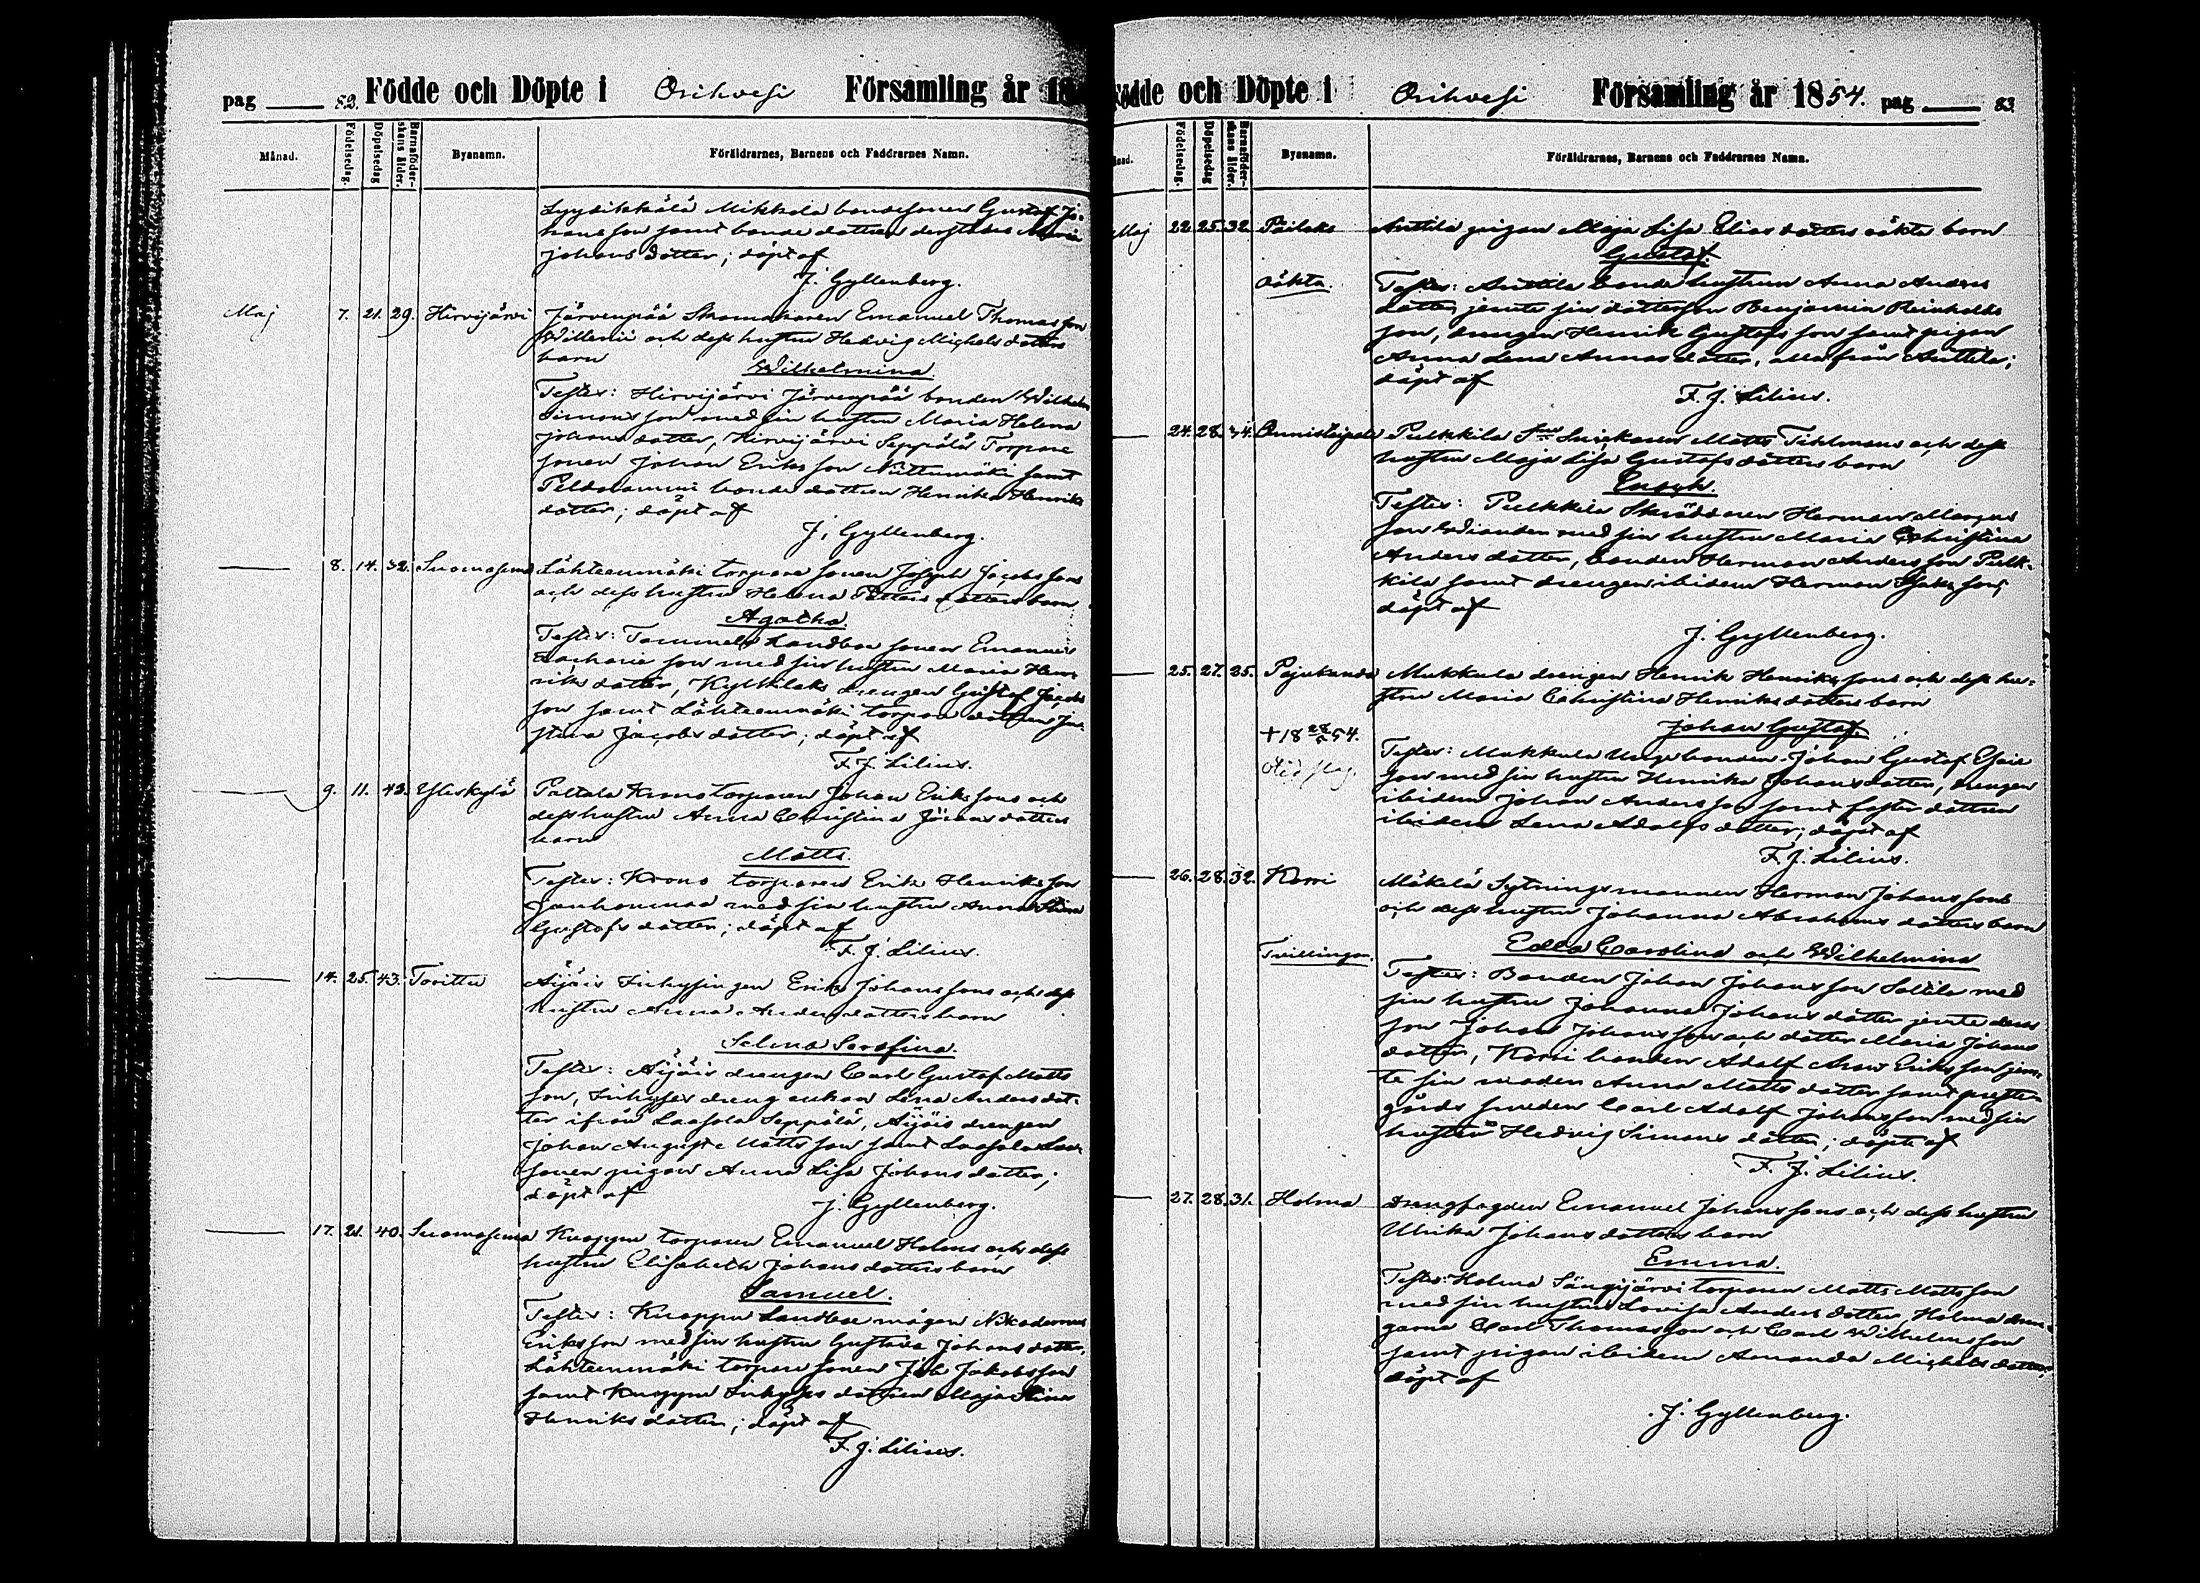 pag 82. Födde och Döpte i Orihvesi Församling år 18
Månad. Födelsedag. Döpelsedag Barnaföderskans ålder. Byanamn. Föräldrarnes, Barnens och Faddrarnes Namn.
Lyytikkälä Mikkola bondesonen Gustaf Jo-
hansson samt bonde dottren derstädes Maria
Johans dotter; döpt af
J. Gyllenberg.
Maj 7. 21. 29. Hirvijärvi Järvenpää Skomakaren Emanuel Thomasson
Willenii och dess hustru Hedvig Michels dotters
barn
Wilhelmina.
Testes: Hirvijärvi Järvenpää bonden Wilhelm
Simonsson med sin hustru Maria Helena
Johans dotter, Hirvijärvi Seppälä Torpare
sonen Johan Eriksson samt
bonde dottren Henrika Henriks
dotter; döpt af
J. Gyllenberg.
8. 14. 32. Suomasema Lähteenmäki torpare sonen Joseph Jacobssons
och dess hustru Helena Petters dotters barn
Agatha.
Testes: Tommela Landbo sonen Emanuel
Zacharie son med sin hustru Maria Hen-
riks dotter, Kyttilaks drengen Gustaf Jacobs
son samt Lähteenmäki torpare dottren Ju-
stina Jacobs dotter; döpt af
F. J. Lilius.
9. 11. 42. Yliskylä Paltala Kronotorparen Johan Erikssons och
dess hustru Anna Christina Jörans dotters
barn
Matts.
Testes: Krono torparen Erik Henriksson
med sin hustru Anna Stina
Gustafs dotter; döpt af
F. J. Lilius.
14. 25. 43. Torittu Äijäis Inhysingen Erik Johanssons och dess
hustru Anna Anders dotters barn
Selma Serafina.
Testes: Äijäis drengen Carl Gustaf Matts
son, Inhyses dreng enkan Lena Anders dot-
ter ifrån Laasola Seppälä, Äijäis drengen
Johan August Mattsson samt Laasola
pigan Anna Lisa Johans dotter;
döpt af
J. Gyllenberg.
17. 21. 40. Suomasema Knappu torparen Emanuel Holms och dess
hustru Elisabeth Johans dotters barn
Samuel.
Testes: Knappu Landbo mågen Nikodemus
Eriksson med sin hustru Gustava Johans dotter,
Lähteenmäki torpare sonen Job Jakobsson
samt Knappu Inhyses dottren Maja Stina
Henriks dotter; döpt af
F. J. Lilius.
Födde och Döpte i Orihvesi Församling år 1854. pag 83.
Födelsedag. Döpelsedag Barnaföderskans ålder. Byanamn. Föräldrarnes, Barnens och Faddrarnes Namn.
Maj 22. 25. 32. Päilaks Anttila pigan Maja Lisa Elias dotters oäkta barn
Gustaf.
oäkta. Testes: Anttila bonde hustrun Anna Anders
dotter jemte sin dotterson Benjamin Reinholds
son, drengen Henrik Gustafsson samt pigan
Anna Lena Annas dotter, alla från Anttila;
döpt af
F. J. Lilius.
24. 28. 34. Onnistaipale Pulkkila Snickaren Matts Tihlmans och dess
hustru Maja Lisa Gustafs dotters barn
Enoch.
Testes: Pulkkila Skräddaren Herman
son med sin hustru Maria Christina
Anders dotter, bonden Herman Andersson Pulk-
kila samt drengen ibidem Herman Isaks son;
döpt af
J. Gyllenberg.
25. 27. 35. Pajukanda Mukkula drengen Henrik Henrikssons och dess hu-
stru Maria Christina Henriks dotters barn
Johan Gustaf.
+ 18 28/5 54. Testes: Mukkula Unge bonden Johan Gustaf Esaie
son med sin hustru Henrika Johans dotter, drengen
ibidem Johan Andersson samt foster dottren
ibidem Lena Adolfs dotter; döpt af
F. J. Lilius.
26. 28. 32. Korri Mäkelä Sytningsmannen Herman Johanssons
och dess hustru Johanna Abrahams dotters barn
Edla Carolina och Wilhelmina
Tvillingar. Testes: Bonden Johan Johansson Soltila med
sin hustru Johanna Johans dotter jemte deras
son Johan Johansson och dotter Maria Johans
dotter, Korri bonden Adolf Aron Eriksson jem-
te sin moder Anna Matts dotter samt prest-
gårds smeden Carl Adolf Johansson med sin
hustru Hedvig Simons dotter; döpte af
F. J. Lilius.
27. 28. 31. Holma Drengfogden Emanuel Johanssons och dess hustru
Ulrika Johans dotters barn
Emma.
Testes: Holma Särgijärvi torparen Matts Mattsson
med sin hustru Lovisa Anders dotter, Holma dren-
garna Carl Thomasson och Carl Wilhelmsson
samt pigan ibidem Amanda Michels dotter;
döpt af
J. Gyllenberg.